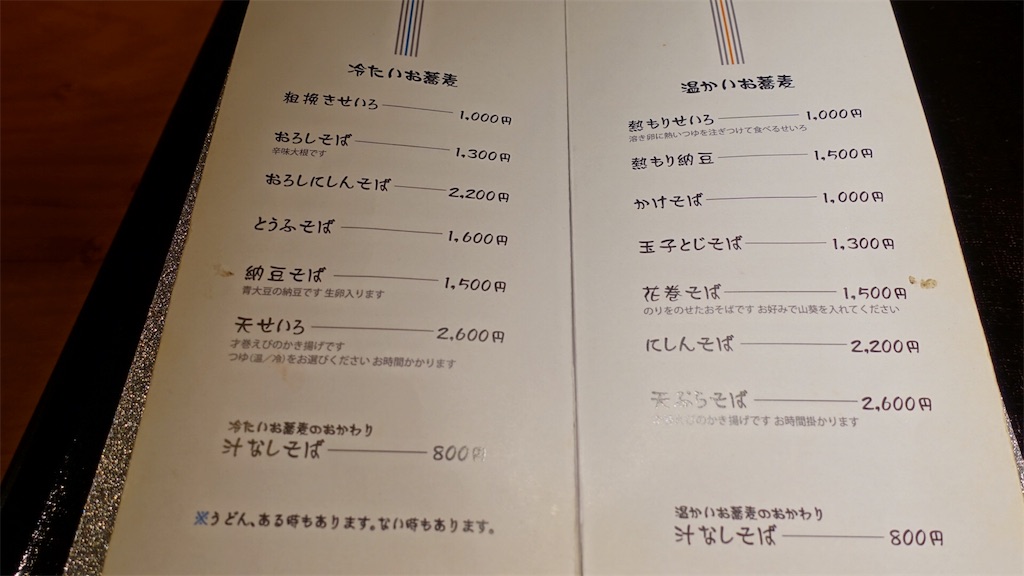 冷たいお蕎麦
粗挽きせいろ 1,000円
おろしそば 1,300円
辛味大根です
おろしにしんそば 2,200円
とうふそば 1,600円
納豆そば 1,500円
青大豆の納豆です 生卵入ります
天せいろ 2,600円
才巻えびのかき揚げです
つゆ(温/冷)をお選びください お時間かかります
冷たいお蕎麦のおかわり
汁なしそば 800円
※うどん、ある時もあります。ない時もあります。
温かいお蕎麦
熱もりせいろ 1,000円
溶き卵に熱いつゆを注ぎつけて食べるせいろ
熱もり納豆 1,500円
かけそば 1,000円
玉子とじそば 1,300円
花巻そば 1,500円
のりをのせたおそばです お好みで山葵を入れてください
にしんそば 2,200円
天ぷらそば 2,600円
えびのかき揚げです お時間掛かります
温かいお蕎麦のおかわり
汁なしそば 800円